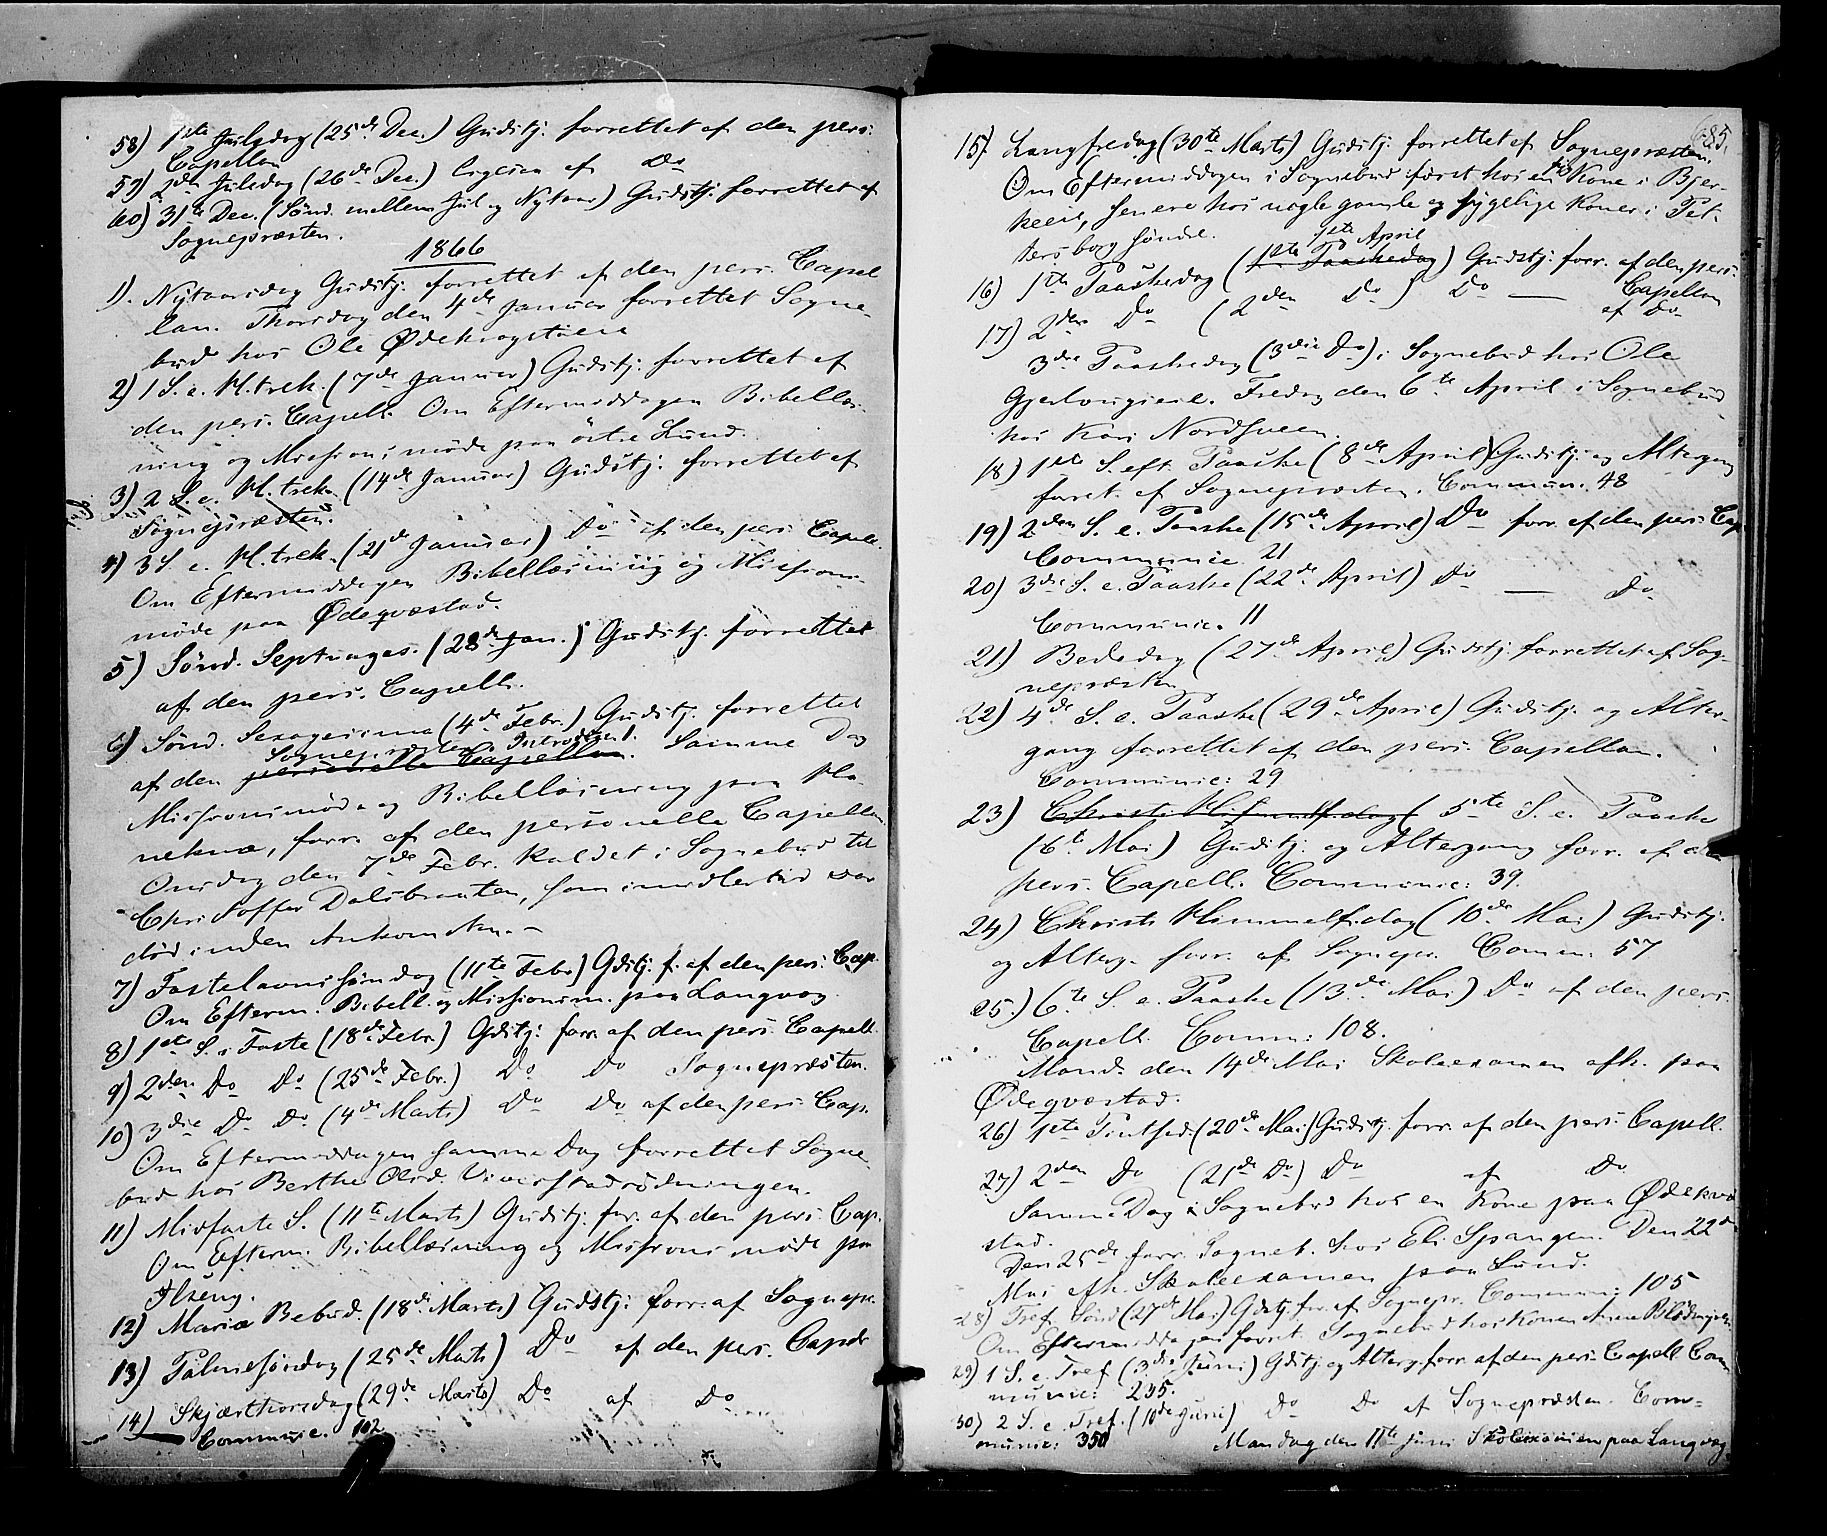 58) 1ste Juledag (25de Dec.) Gudstj. forrettet af den pers.
Capellan
59) 2den Juledag (26de Dec.) ligesaa af Do
60) 31te Dec. (Sönd. mellem Jul og Nytaar) Gudstj. forrettet af
Sognepræsten.
1866
1). Nytaarsdag Gudstj. forrettet af den pers. Capel
lan. Thorsdag den 4de Januar forrettet Sogne-
bud hos Ole Ødekrogstuen
2) 1 S. e. H.trek. (7de Januar) Gudstj. forrettet af
den pers. Capell. Om Eftermiddagen Bibellæs-
ning og Missionsmöde paa östre Lund.
3) 2 S. e. H.trek. (14de Januar) Gudstj. forrettet af
Sognepræsten.
4) 3 S. e. H.trek. (21de Januar) Do af den pers. Capell.
Om Eftermiddagen Bibellæsning og Missions-
möde paa Ødeqvæstad.
5) Sönd. Septuages. (28de Jan.) Gudstj. forrettet
af den pers. Capell.
6) Sönd. Sexagesima (4de Febr.) Gudstj. forrettet
Sognepræsten Introd.
af den personelle Capellan. Samme Dag
Missionsmöde og Bibellæsning paa
forr. af den personelle Capellan.
Onsdag den 7de Febr. kaldet i Sognebud til
Christoffer Dalsbraaten, som imidlertid var
död inden Ankomsten.-
7) Fastelavnssöndag (11te Febr.) Gdstj. f. af den pers. Cap.
Om Efterm. Bibell. og Missionsm. paa Langvag
8) 1ste S. i Faste (18de Febr.) Gdstj. forr. af den pers. Capell.
9) 2den Do Do (25de Febr.) Do Do Sognepræsten.
10) 3die Do Do (4de Marts) Do Do af den pers. Cap.
Om Eftermiddagen samme Dag forrettet Sogne-
bud hos Berthe Olsd.
11) Midfaste S. (11te Marts) Gudstj. for. af den pers. Cap.
Om Efterm. Bibellæsning og Missionsmöde paa
Ilseng.
12) Mariæ Bebud. (18de Marts) Gudstj. forr. af Sognepr.
13) Palmesöndag (25de Marts) Do af den pers. Capell
14) Skjærthorsdag (29de Marts) Do af Do
Communic. 102
685.
15). Langfredag (30te Marts) Gudstj. forrettet af Sognepræsten.
Om Eftermiddagen i Sognebud först hos en Kone i Bjer-
keeie, senere hos nogle gamle og sygelige Koner i Pet-
tersborg söndre.
1ste April
16) 1ste Paaskedag (1ste Paaskedag) Gudstj. forr. af den pers.
Capellan
17) 2den Do (2den Do) Do — af Do
3die Paaskedag (3die Do) i Sognebud hos Ole
Fredag den 6te April i Sognebud
hos Kari Nordsveen.
18) 1ste S. eft. Paaske (8de April) Gudstj. og Altergang
forret. af Sognepræsten. Commun. 48
19) 2den S. e. Paaske (15de April) Do forr. af den pers. Cap
Communic. 21
20) 3die S. e. Paaske (22de April) Do — Do
Communic. 11
21) Bededag (27de April) Gudstj. forrettet af Sog-
nepræsten
22) 4de S. e. Paaske (29de April) Gudstj. og Alter-
gang forrettet af den pers. Capellan.
Communic: 29
23) Christi Himmelf.dag ( 5te S. e. Paaske
(6te Mai) Gudstj. og Altergang forr. af den
pers. Capell. Communic: 39.
24) Christi Himmelf.dag (10de Mai) Gudstj.
og Alterg. forr. af Sognepr. Comun. 57
25.) 6te S. e. Paaske (13de Mai) Do af den pers.
Capell. Comm: 108.
Mand. den 14de Mai Skoleexamen afh. paa
Ødeqvæstad.
26) 1ste Pintsed. (20de Mai) Gudstj. forr. af den pers. Capell.
27) 2den Do (21de Do) Do af Do
Samme Dag i Sognebud hos en Kone paa Ødekvæ
stad.
Den 25de forr. Sogneb. hos Eli Spangen. Den 22de
Mai afh. Skoleexamen paa Lund.
28) Tref. Sönd (27de Mai) Gdstj. for. af Sognepr. Commun: 105
Om Eftermiddagen forret. Sognebud hos Konen Anne
29) 1 S. e. Tref (3die Juni) Gdstj. og Alterg. forr. af den pers. Capell Com
munic: 235.
30) 2 S. e Tref. (10de Juni) Do Do af Sognepræsten. Com-
munic: 350 Mandag den 11te Juni Skolexamen paa Langvag